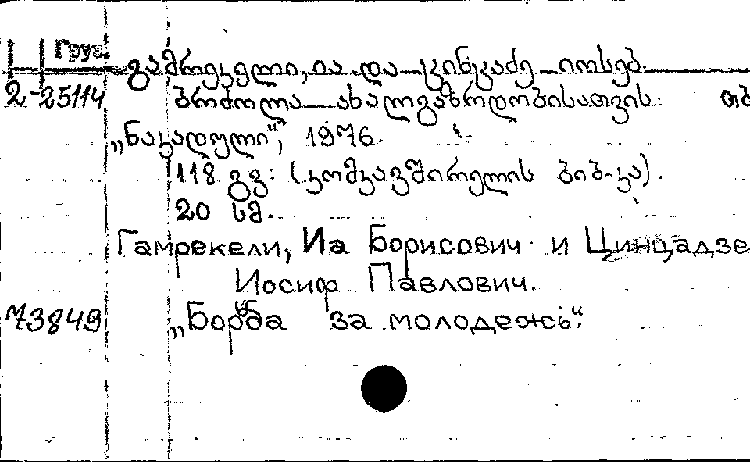 Груз.
გამრეკელი, ია და ცინცაძე იოსებ
2-25114 ბრძოლა ახალგაზრდობისათვის თბ
„ნაკადული“, 1976.
118 გვ. (კომკავშირელის ბიბ-კა).
20 სმ.
Гамрекели, Иа Борисович и Цинцадзе
Иосиф Павлович.
73849 „Борьба за молодежь“.